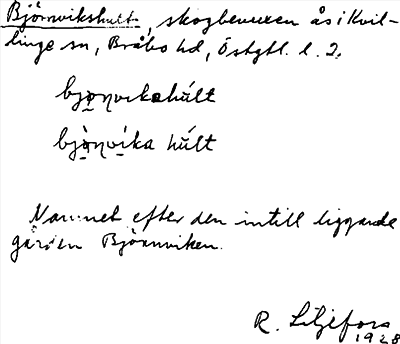 Björnvikshult, skogbevuxen ås i Kvil-
linge sn, Bråbo hd, Östgtl. l. 2.
bjo̤ŋvikshúlt
bjȯ̤ŋvi̤ka húlt
Namnet efter den intill liggande
gården Björnviken.
R. Liljefors
1928